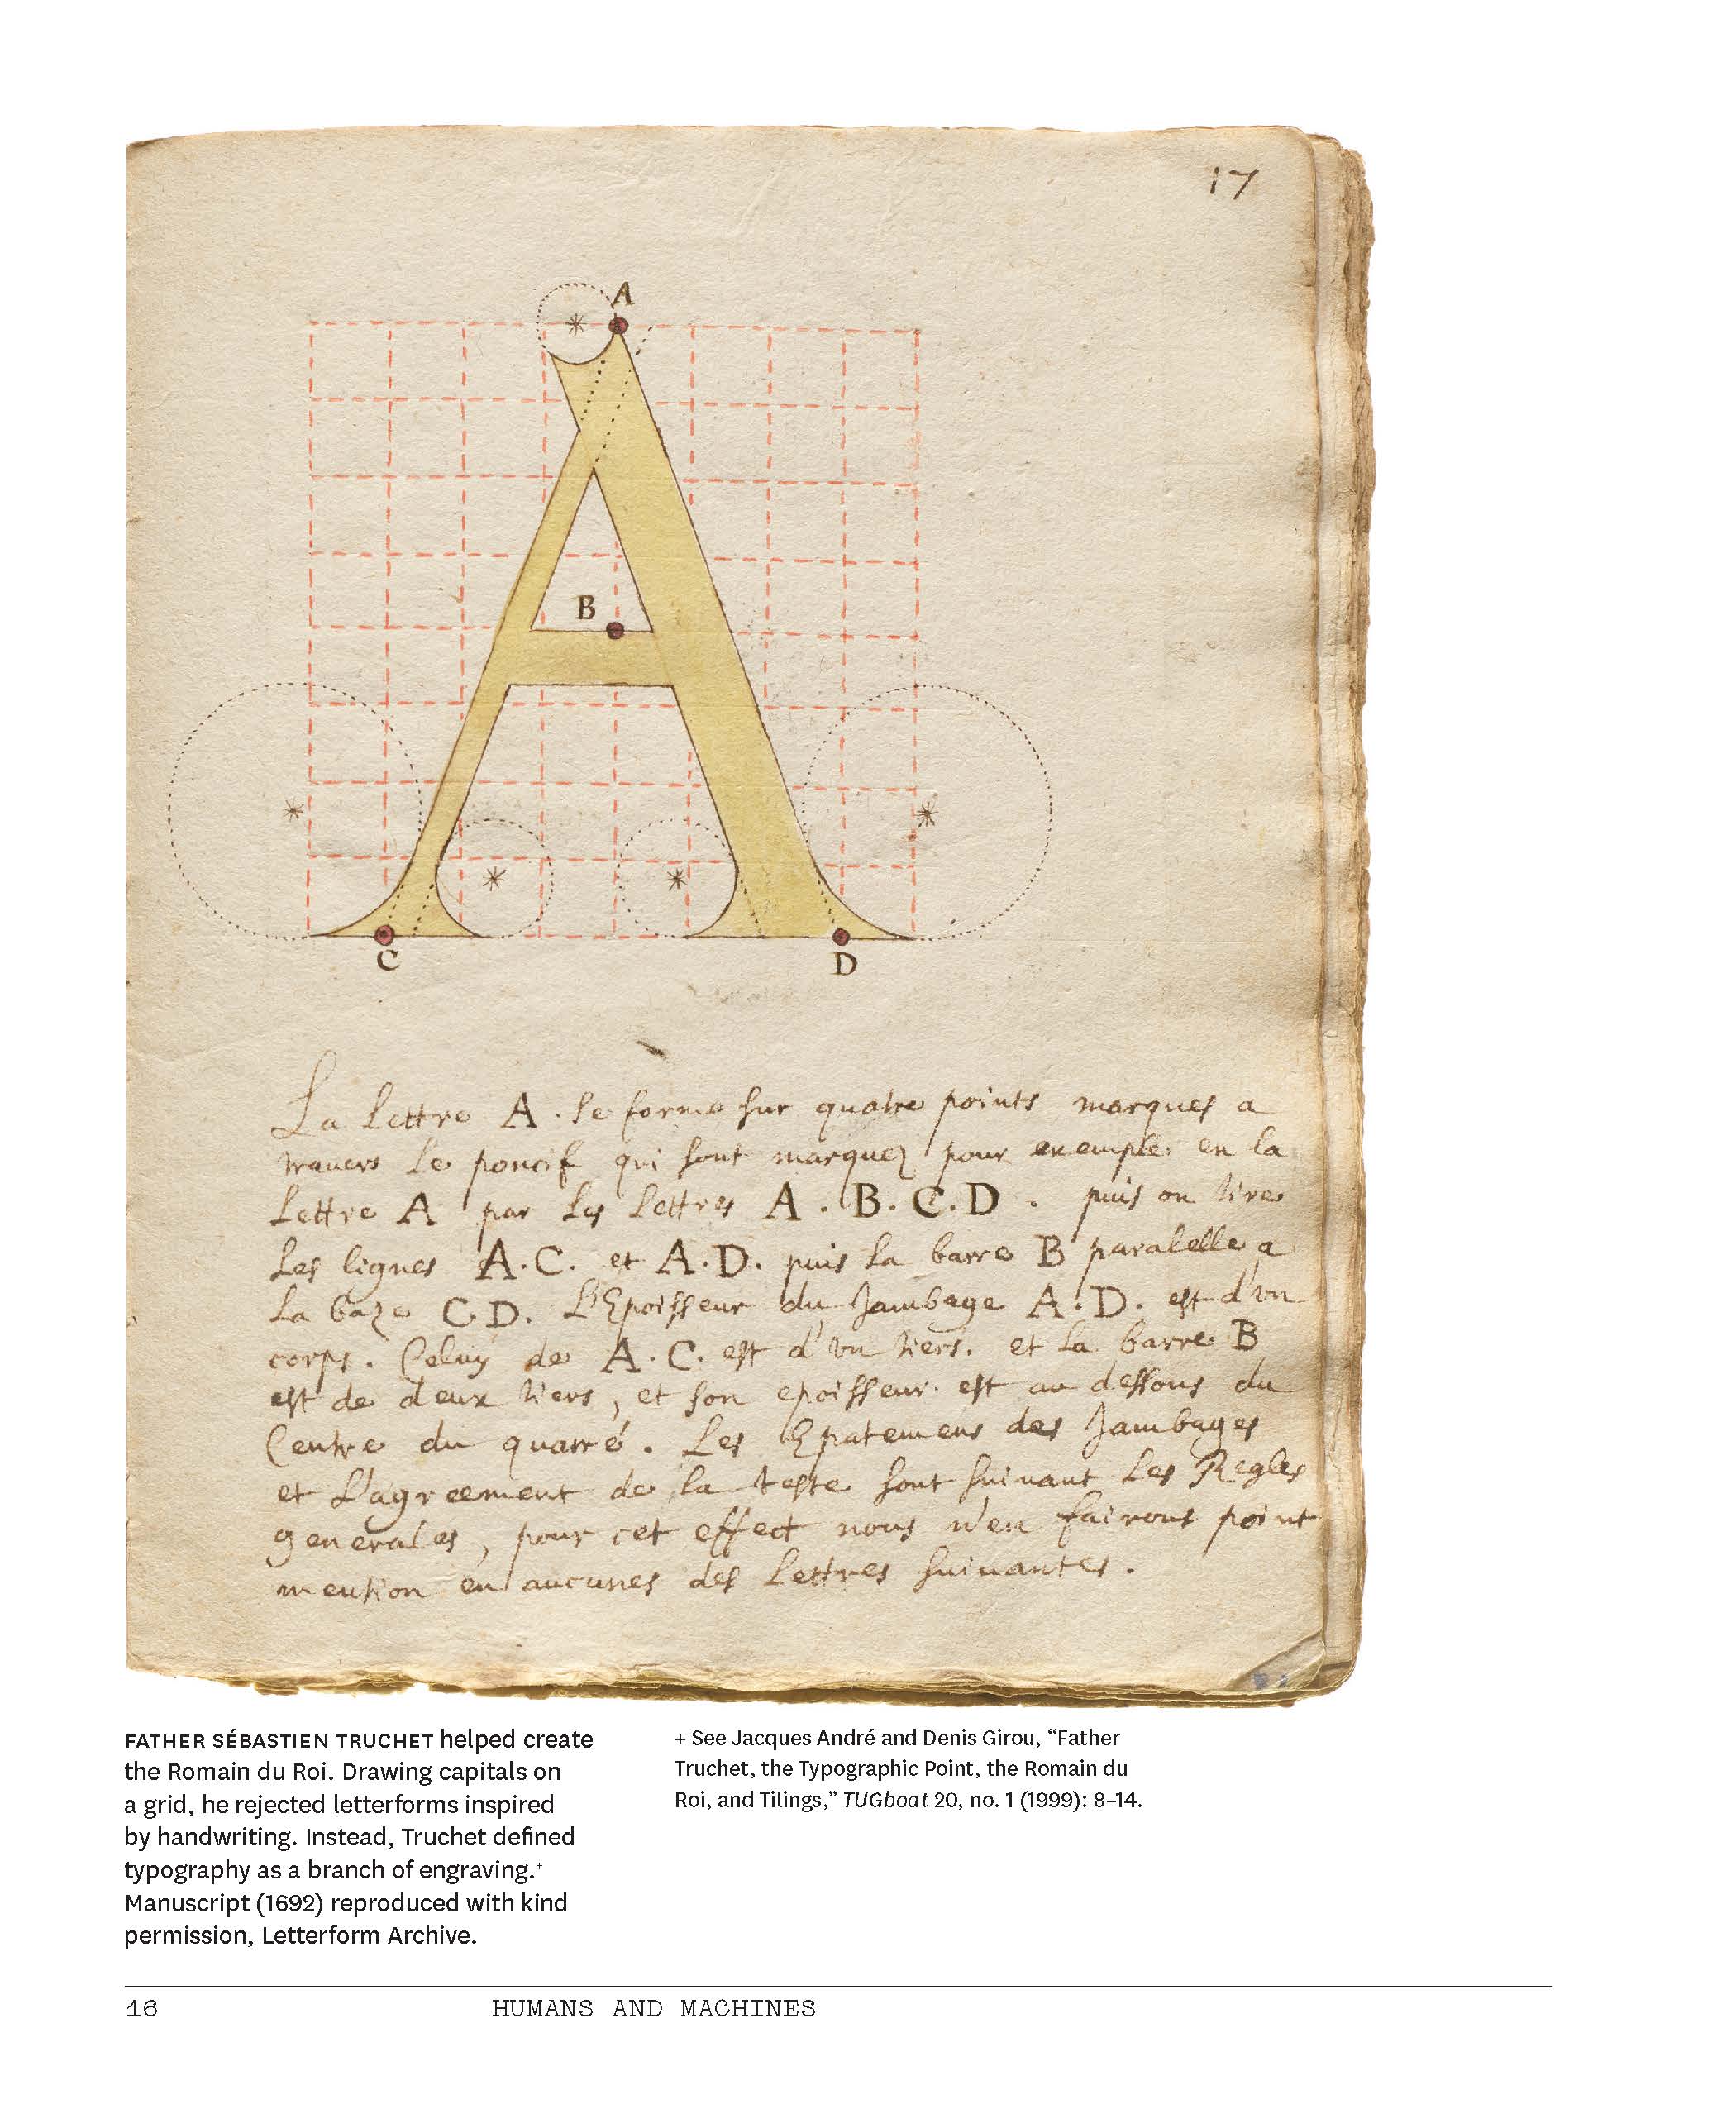 17
A
B
C
D
La lettre A. se forme sur quatre points marques a
travers le poncif qui sont marquez pour exemple en la
lettre A par les lettres A. B. C. D. puis on tire
les lignes A.C. et A.D. puis la barre B paralelle a
la baze C.D. L'Epoisseur du Jambage A.D. est d'vn
corps. Celuy de A.C. est d'vn tiers. et la barre B
est de deux tiers, et son epoisseur est au dessous du
Centre du quarré. Les Epatemens des Jambages
et L'agreement de la teste sont suivant Les Regles
generales, pour cet effect nous n'en fairons point
mention en aucunes des Lettres suivantes.
FATHER SÉBASTIEN TRUCHET helped create
the Romain du Roi. Drawing capitals on
a grid, he rejected letterforms inspired
by handwriting. Instead, Truchet defined
typography as a branch of engraving.+
Manuscript (1692) reproduced with kind
permission, Letterform Archive.
+ See Jacques André and Denis Girou, “Father
Truchet, the Typographic Point, the Romain du
Roi, and Tilings,” TUGboat 20, no. 1 (1999): 8–14.
16 HUMANS AND MACHINES